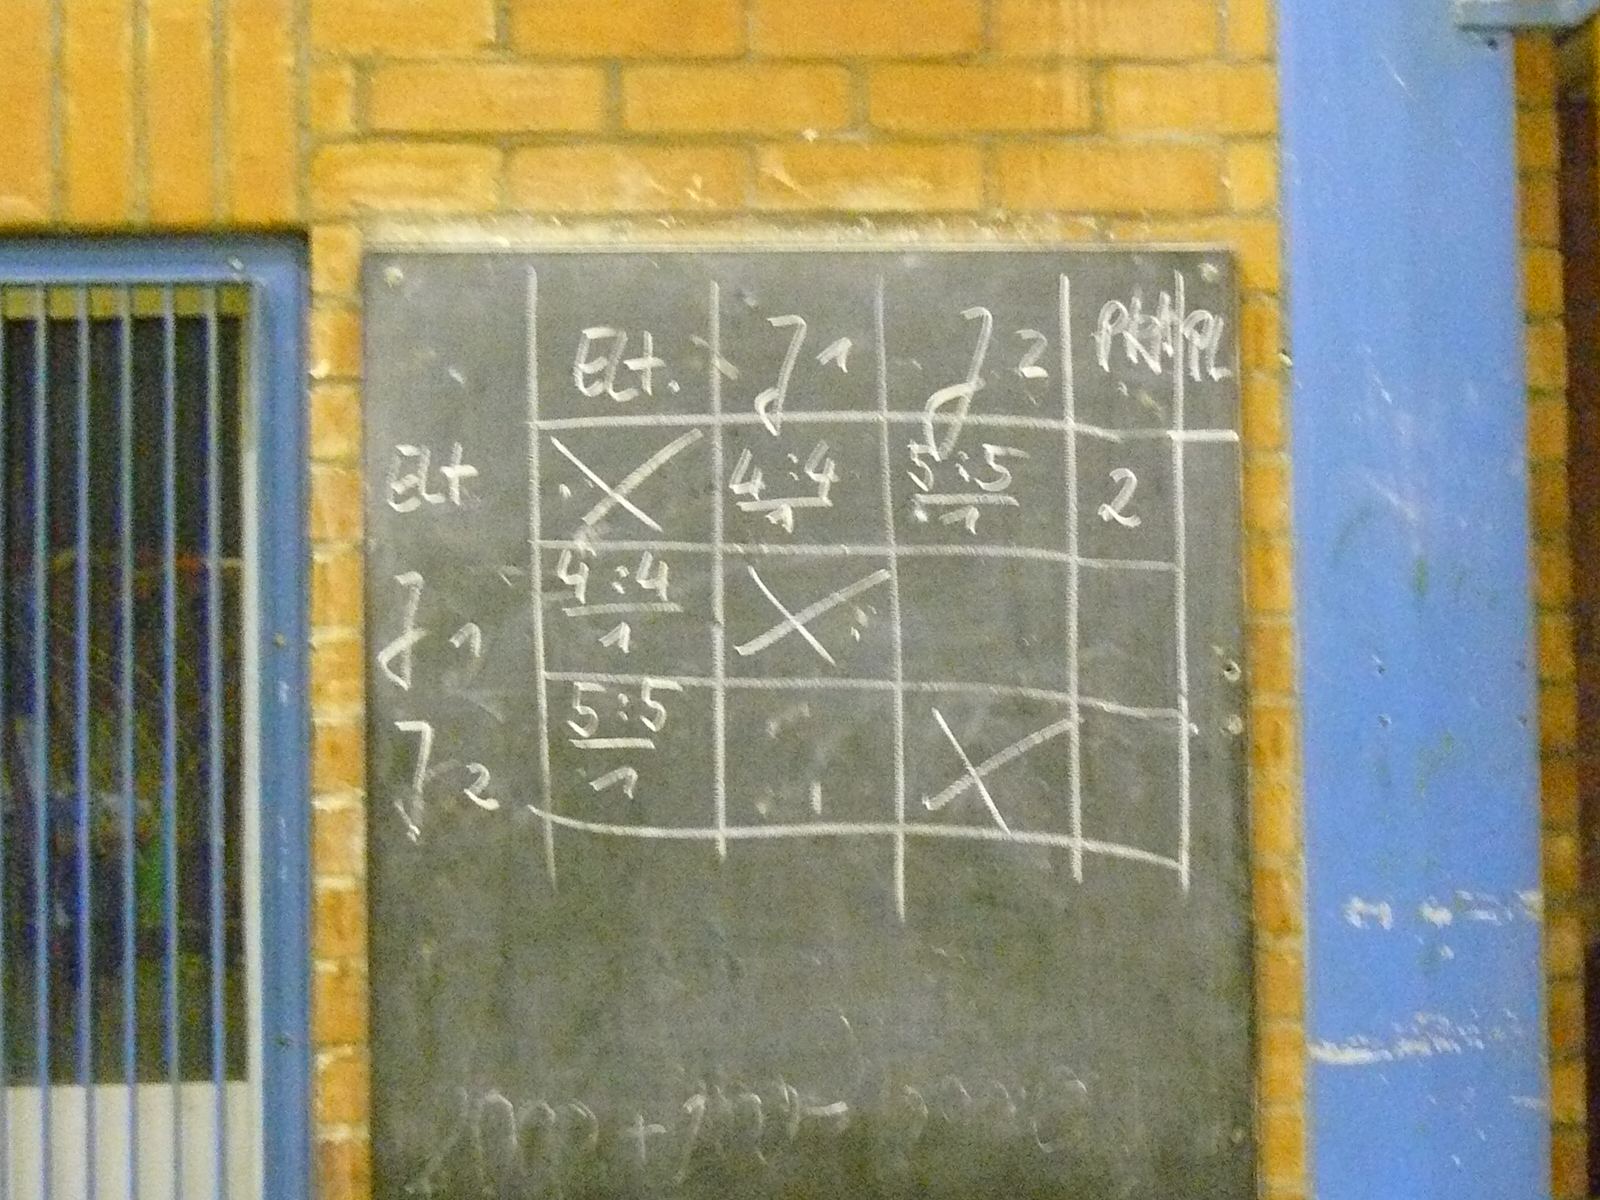 Elt. J1 J2 PKT PL
Elt 4:4 5:5 2
1 1
J1 4:4
1
J2 5:5
1